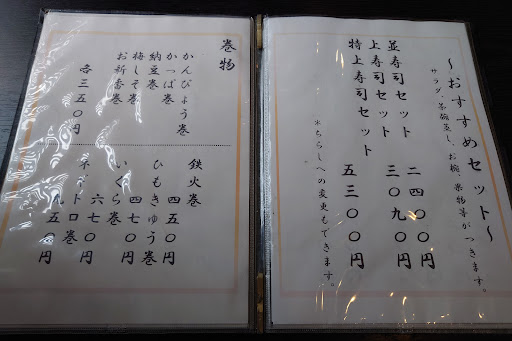 〜おすすめセット〜
サラダ、茶碗蒸し、お椀、果物等がつきます。
並寿司セット 二四〇〇円
上寿司セット 三〇九〇円
特上寿司セット 五三〇〇円
*ちらしへの変更もできます。
巻物
かんぴょう巻
かっぱ巻
納豆巻
梅しそ巻
お新香巻
各三五〇円
鉄火巻 四五〇円
ひもきゅう巻 四七〇円
いくら巻 六七〇円
ネギトロ巻 九五〇円